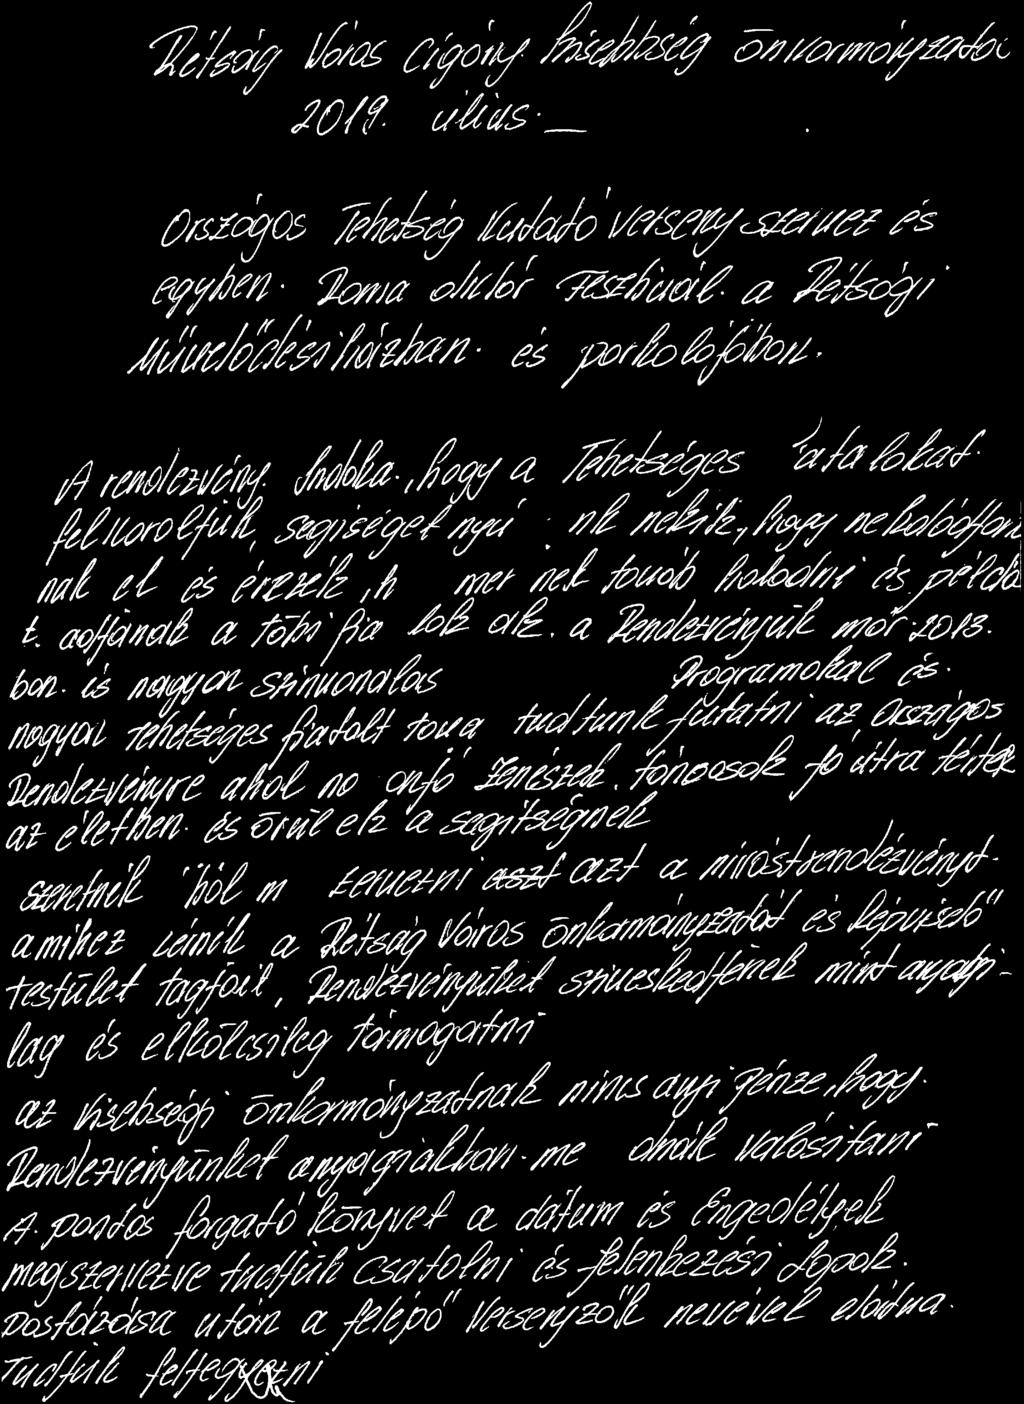 Rétság Város Cigány. Kisebbség önkormányzatai
2019. úlius. _
Országos Tehetség Kutató verseny szervez és
egyben. Roma októr Fesztivál. a Rétsági
Művelődésiházban. és parkolójában.
A rendezvény. Indoka., hogy a Tehetséges iatalokat.
felkaroljuk, segiséget nyú nk nekik, hogy ne kalódjan
nak el és érezzék, h mer nek továb haladni és példá
t. adjanak a többi fia lok ak. a Rendezvényük már. 2013.
ban. is nagyon szinvonalas Programokal és.
nagyon tehetséges fiatalt tová tudtunk jutatni az Országos
Rendezvényre ahol na onjó Zenészek. táncosok jó útra tértek
az életben. és örül ek a segitségnek
szeretnék ból m zervezni azt a minöstrendézvényt.
amihez kérnék a Rétság Város önkormányzatát és képviselő
testület tagjait, Rendezvényüket sziveskedjenek mint anyagi-
lag és elkölcsileg támogatni
az kisebségi önkormányzatnak nincs anyi pénze, hogy.
Rendezvényünket anyagiakban. me dnák valósitani
A. pontos forgató könyvet a dátum és Engedélyek
megszervezve tudjuk csatolni és jelenkezési lapok.
Postázása után a felépő Versenyzők neveivel eladva.
Tudjuk feljegyezni